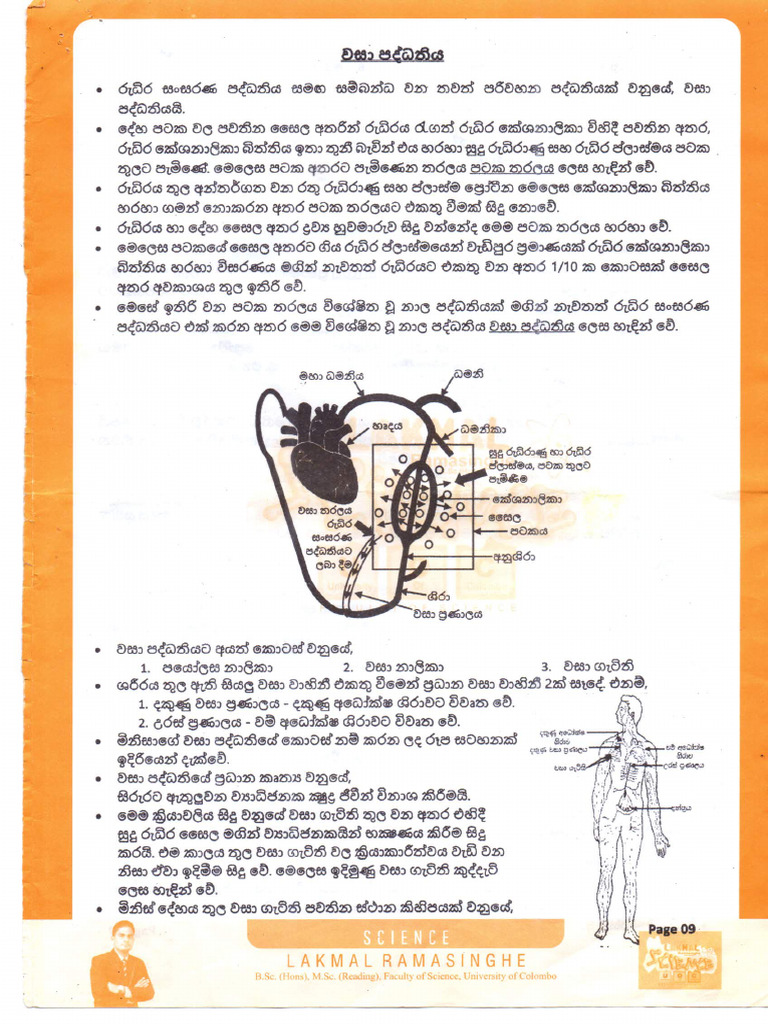 වසා පද්ධතිය
• රුධිර සංසරණ පද්ධතිය සමඟ සම්බන්ධ වන තවත් පරිවහන පද්ධතියක් වනුයේ, වසා
පද්ධතියයි.
• දේහ පටක වල පවතින සෛල අතරින් රුධිරය රැගත් රුධිර කේශනාලිකා විහිදී පවතින අතර,
රුධිර කේශනාලිකා බිත්තිය ඉතා තුනී බැවින් එය හරහා සුදු රුධිරාණු සහ රුධිර ප්ලාස්මය පටක
තුලට පැමිණේ. මෙලෙස පටක අතරට පැමිණෙන තරලය පටක තරලය ලෙස හැඳින් වේ.
• රුධිරය තුල අන්තර්ගත වන රතු රුධිරාණු සහ ප්ලාස්ම ප්‍රෝටීන මෙලෙස කේශනාලිකා බිත්තිය
හරහා ගමන් නොකරන අතර පටක තරලයට එකතු වීමක් සිදු නොවේ.
• රුධිරය හා දේහ සෛල අතර ද්‍රව්‍ය හුවමාරුව සිදු වන්නේද මෙම පටක තරලය හරහා වේ.
• මෙලෙස පටකයේ සෛල අතරට ගිය රුධිර ප්ලාස්මයෙන් වැඩිපුර ප්‍රමාණයක් රුධිර කේශනාලිකා
බිත්තිය හරහා විසරණය මගින් නැවතත් රුධිරයට එකතු වන අතර 1/10 ක කොටසක් සෛල
අතර අවකාශය තුල ඉතිරි වේ.
• මෙසේ ඉතිරි වන පටක තරලය විශේෂිත වූ නාල පද්ධතියක් මගින් නැවතත් රුධිර සංසරණ
පද්ධතියට එක් කරන අතර මෙම විශේෂිත වූ නාල පද්ධතිය වසා පද්ධතිය ලෙස හැඳින් වේ.
මහා ධමනිය
ධමනි
හෘදය
ධමනිකා
සුදු රුධිරාණු හා රුධිර
ප්ලාස්මය, පටක තුලට
පැමිණීම
කේශනාලිකා
වසා තරලය
රුධිර
සංසරණ
පද්ධතියට
ලබා දීම
සෛල
පටකය
අනුශිරා
ශිරා
වසා ප්‍රණාලය
• වසා පද්ධතියට අයත් කොටස් වනුයේ,
1. පයෝලස නාලිකා 2. වසා නාලිකා 3. වසා ගැටිති
• ශරීරය තුල ඇති සියලු වසා වාහිනී එකතු වීමෙන් ප්‍රධාන වසා වාහිනී 2ක් සෑදේ. එනම්,
1. දකුණු වසා ප්‍රණාලය - දකුණු අධෝක්ෂ ශිරාවට විවෘත වේ.
2. උරස් ප්‍රණාලය - වම් අධෝක්ෂ ශිරාවට විවෘත වේ.
• මිනිසාගේ වසා පද්ධතියේ කොටස් නම් කරන ලද රූප සටහනක්
ඉදිරියෙන් දැක්වේ.
• වසා පද්ධතියේ ප්‍රධාන කෘත්‍ය වනුයේ,
සිරුරට ඇතුලුවන ව්‍යාධිජනක ක්‍ෂුද්‍ර ජීවීන් විනාශ කිරීමයි.
• මෙම ක්‍රියාවලිය සිදු වනුයේ වසා ගැටිති තුල වන අතර එහිදී
සුදු රුධිර සෛල මගින් ව්‍යාධිජනකයින් භක්‍ෂණය කිරීම සිදු
කරයි. එම කාලය තුල වසා ගැටිති වල ක්‍රියාකාරීත්වය වැඩි වන
නිසා ඒවා ඉදිමීම සිදු වේ. මෙලෙස ඉදිමුණු වසා ගැටිති කුද්දැටි
ලෙස හැඳින් වේ.
• මිනිස් දේහය තුල වසා ගැටිති පවතින ස්ථාන කිහිපයක් වනුයේ,
දකුණු අධෝක්ෂ
ශිරාව
දකුණු වසා ප්‍රණාලය
වසා ගැටිති
වම් අධෝක්ෂ
ශිරාව
උරස් ප්‍රණාලය
Page 09
SCIENCE
LAKMAL RAMASINGHE
B.Sc. (Hons), M.Sc. (Reading), Faculty of Science, University of Colombo